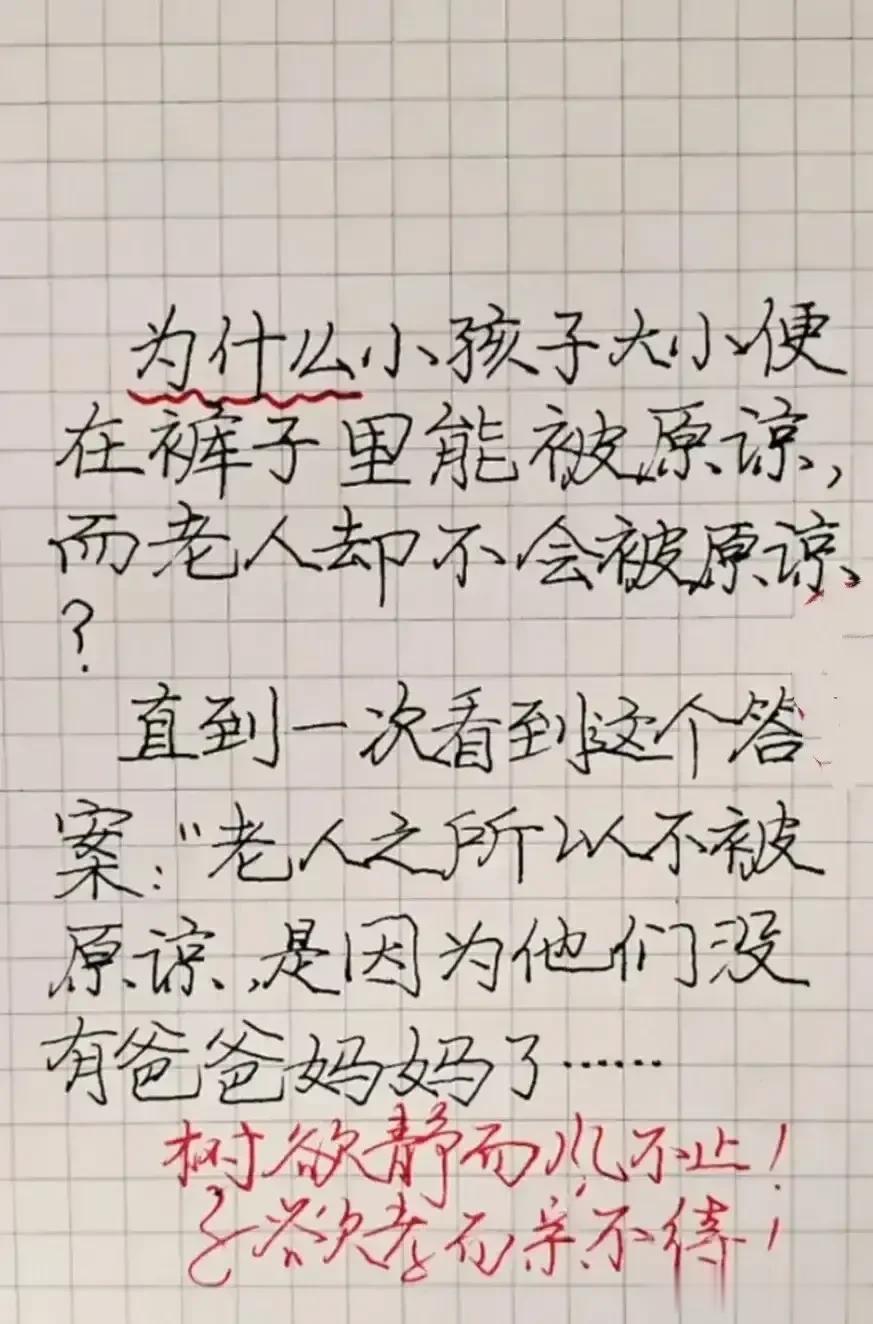 为什么小孩子大小便
在裤子里能被原谅,
而老人却不会被原谅
?
直到一次看到这个答
案:"老人之所以不被
原谅,是因为他们没
有爸爸妈妈了……
树欲静而风不止!
子欲孝而亲不待!